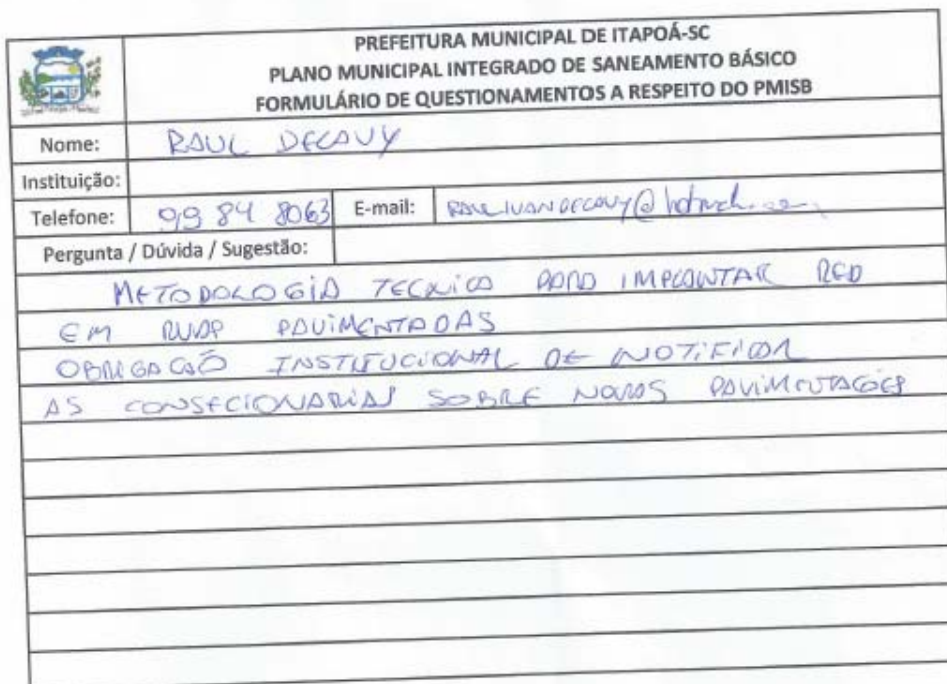 PREFEITURA MUNICIPAL DE ITAPOÁ-SC
PLANO MUNICIPAL INTEGRADO DE SANEAMENTO BÁSICO
FORMULÁRIO DE QUESTIONAMENTOS A RESPEITO DO PMISB
Nome: RAUL DECAVY
Instituição:
Telefone: 9984 8063 E-mail:
Pergunta / Dúvida / Sugestão:
METODOLOGIA TECNICA PARA IMPLANTAR RED
EM RUAS PAVIMENTADAS
OBRIGAÇÃO INSTITUCIONAL DE NOTIFICAR
AS CONSECIONARIAS SOBRE NOVAS PAVIMENTAÇÕES